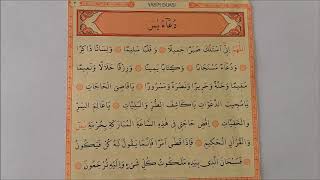 YASİN DUASI
دُعَاءُ يٰسٓ
اَللّٰهُمَّ اِنِّي اَسْئَلُكَ صَبْرًا جَمِيلًا وَقَلْبًا سَلِيمًا وَلِسَانًا ذَاكِرًا
وَدُعَاءً مُسْتَجَابًا وَكِتَابًا يَمِينًا وَرِزْقًا حَلَالًا وَنَعِيمًا
مُقِيمًا وَجَنَّةً وَحَرِيرًا وَنَضْرَةً وَسُرُورًا يَا قَاضِيَ الْحَاجَاتِ
يَا مُجِيبَ الدَّعَوَاتِ يَا كَاشِفَ الضُّرِّ وَالْبَلِيَّاتِ يَا عَالِمَ السِّرِّ
وَالْخَفِيَّاتِ اِقْضِ حَاجَتِي فِي هٰذِهِ السَّاعَةِ الْمُبَارَكَةِ بِحُرْمَةِ يٰسٓ
وَالْقُرْاٰنِ الْحَكِيمِ فَاِذَا قَضٰى اَمْرًا فَاِنَّمَا يَقُولُ لَهُ كُنْ فَيَكُونُ
فَسُبْحَانَ الَّذِي بِيَدِهِ مَلَكُوتُ كُلِّ شَيْءٍ وَاِلَيْهِ تُرْجَعُونَ